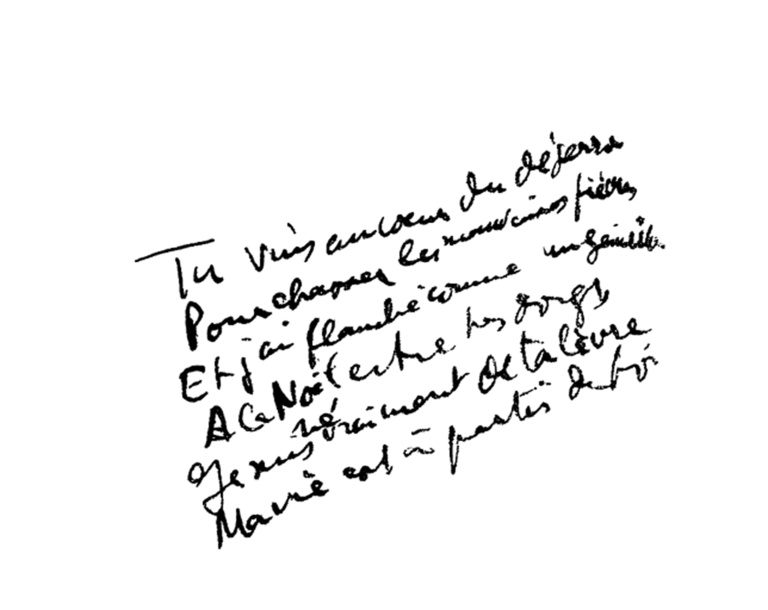 Tu vins au coeur du désarroi
Pour chasser les mauvaises fièvres
Et j'ai flambé comme un genièvre
A la Noël entre tes doigts
Je suis né vraiment de ta lèvre
Ma vie est à partir de toi